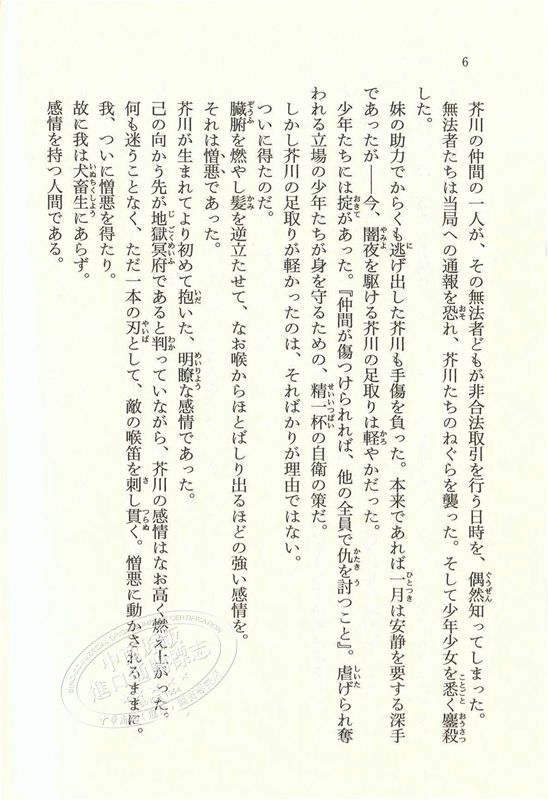 6
芥川の仲間の一人が、その無法者どもが非合法取引を行う日時を、偶然知ってしまった。
無法者たちは当局への通報を恐れ、芥川たちのねぐらを襲った。そして少年少女を悉く鏖殺
した。
妹の助力でからくも逃げ出した芥川も手傷を負った。本来であれば一月は安静を要する深手
であったが――今、闇夜を駆ける芥川の足取りは軽やかだった。
少年たちには掟があった。『仲間が傷つけられれば、他の全員で仇を討つこと』。虐げられ奪
われる立場の少年たちが身を守るための、精一杯の自衛の策だ。
しかし芥川の足取りが軽かったのは、そればかりが理由ではない。
ついに得たのだ。
臓腑を燃やし髪を逆立たせて、なお喉からほとばしり出るほどの強い感情を。
それは憎悪であった。
芥川が生まれてより初めて抱いた、明瞭な感情であった。
己の向かう先が地獄冥府であると判っていながら、芥川の感情はなお高く燃え上がった。
何も迷うことなく、ただ一本の刃として、敵の喉笛を刺し貫く。憎悪に動かされるままに。
我、ついに憎悪を得たり。
故に我は犬畜生にあらず。
感情を持つ人間である。